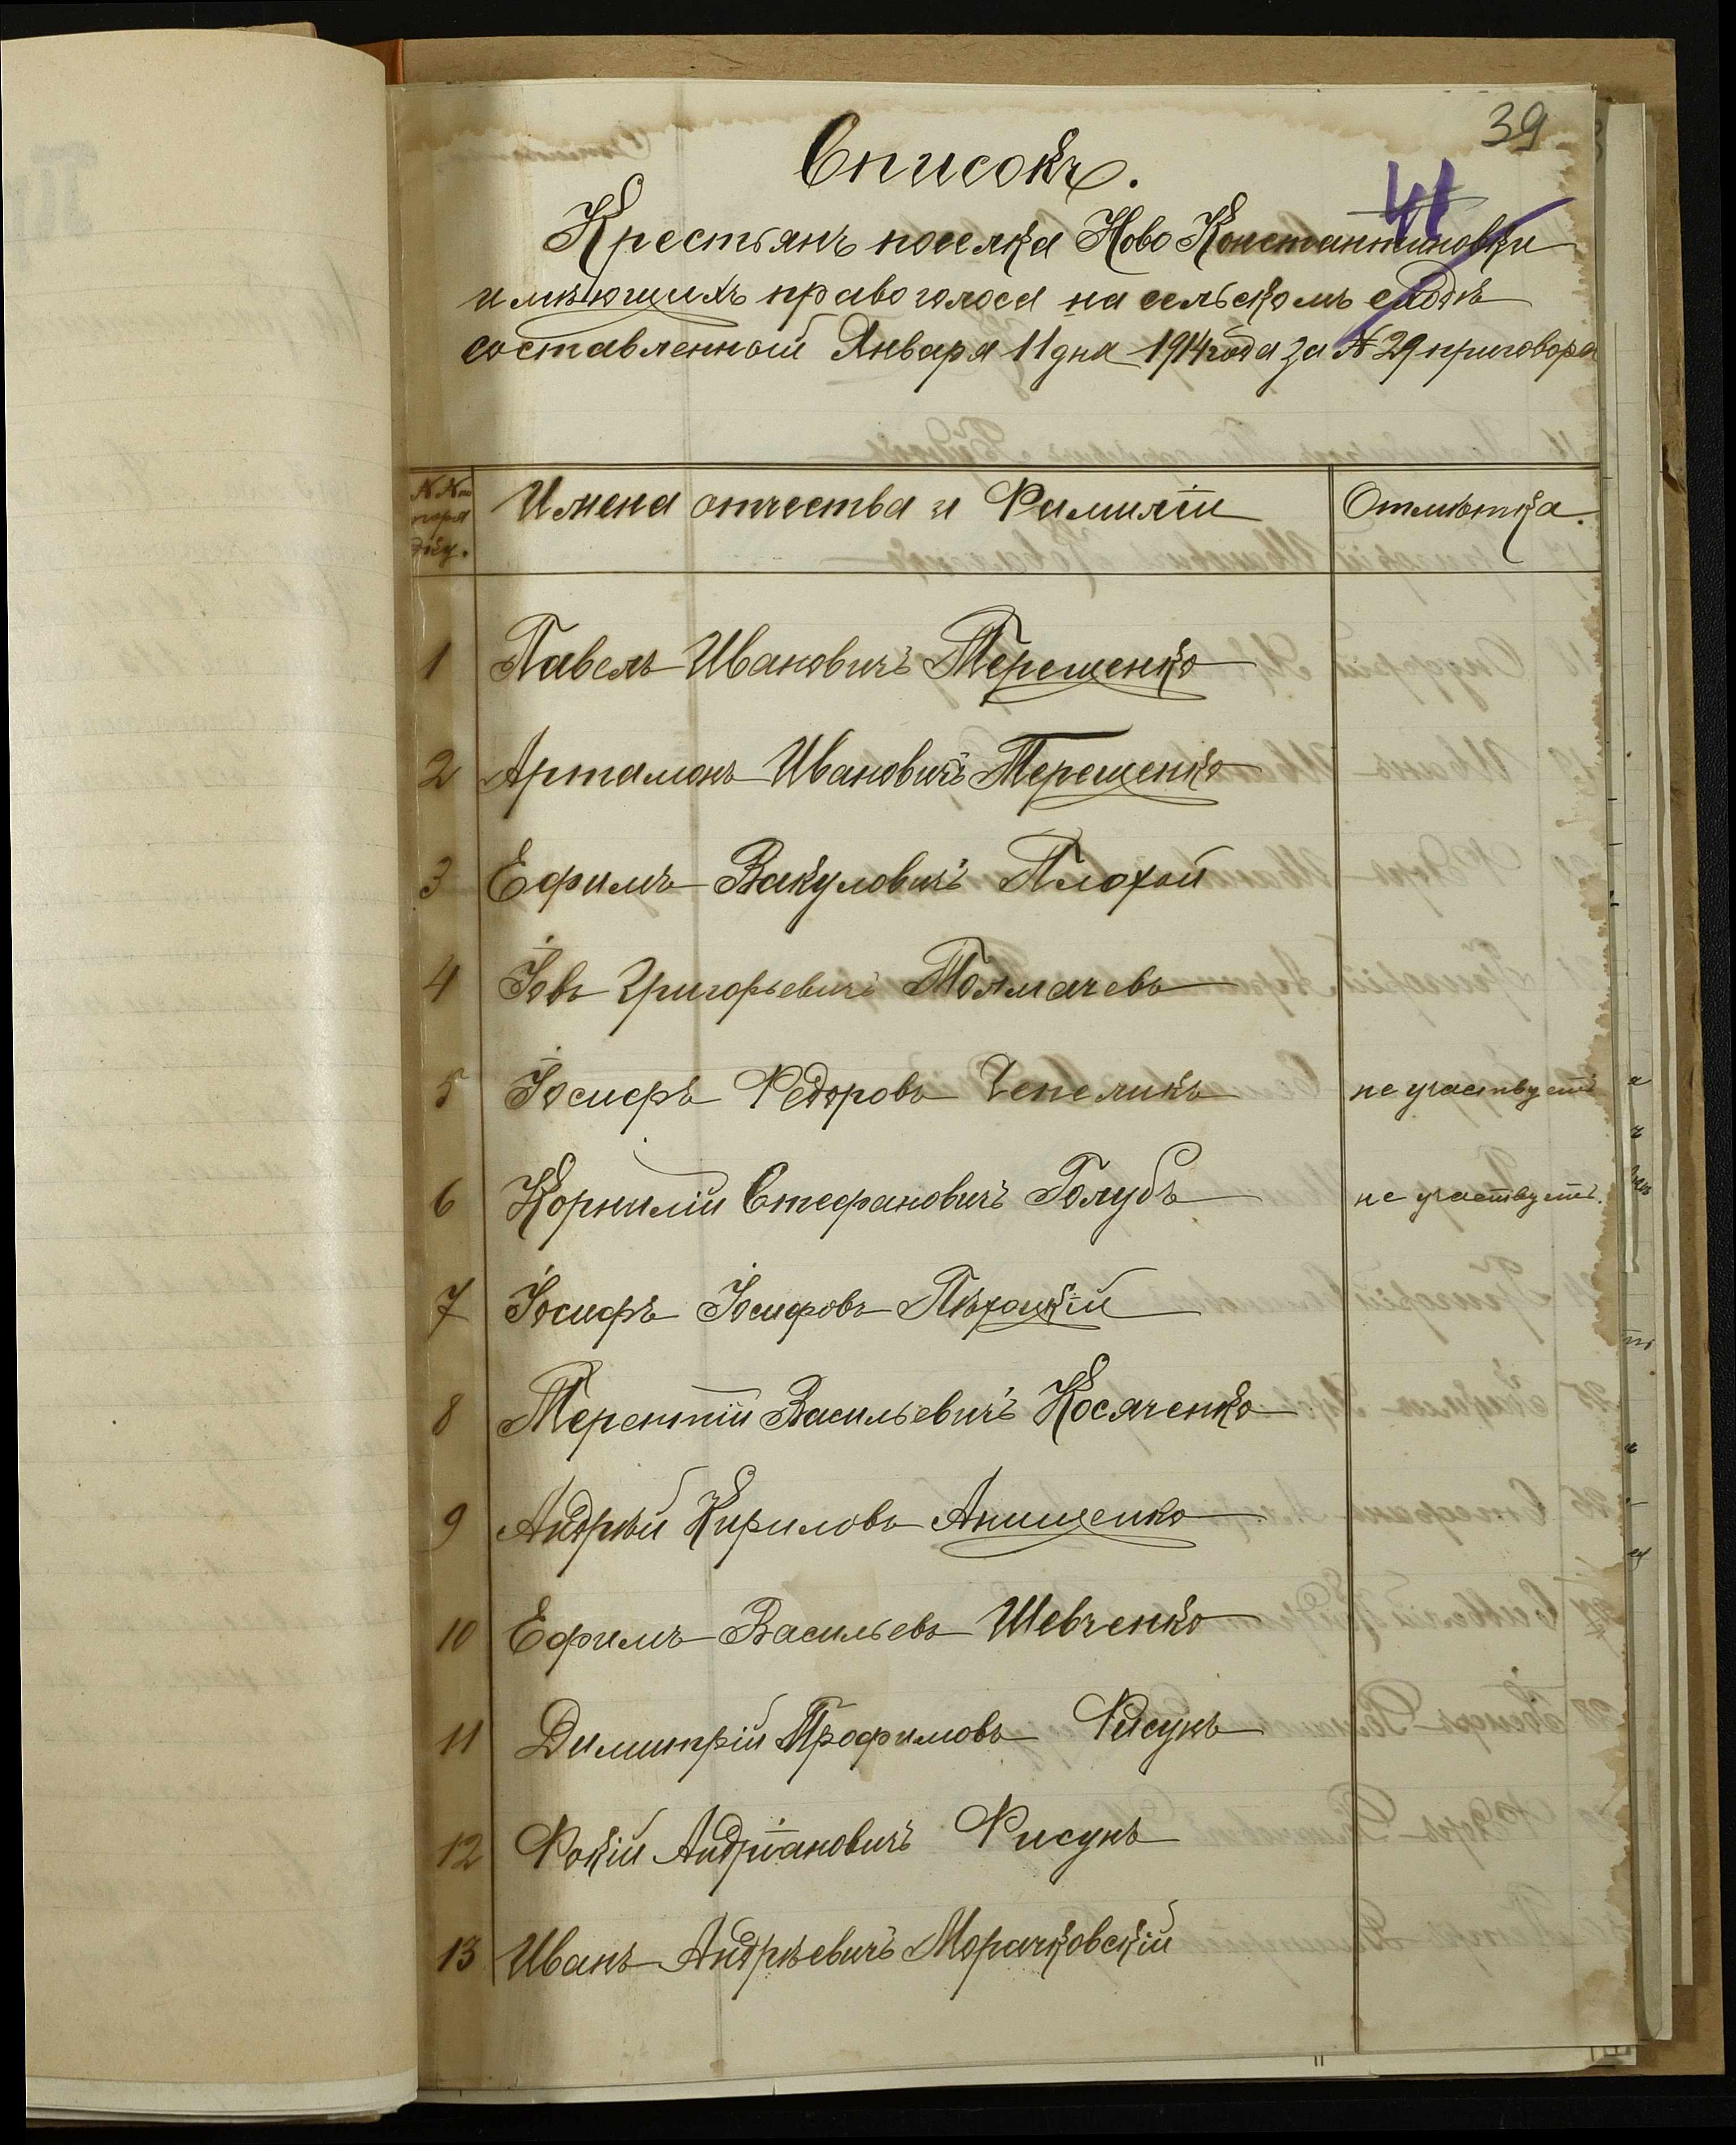 39
41
Списокъ.
Крестьянъ поселка Ново Константиновки
имѣющихъ право голоса на сельскомъ сходѣ
составленной Января 11 дня 1914 года за № 29 приговора
№№ по порядку.
Имена отчества и Фамиліи
Отмѣтка.
1 Павелъ Ивановичъ Терещенко
2 Артамонъ Ивановичъ Терещенко
3 Ефимъ Вакуловичъ Плохой
4 Іовъ Григорьевичъ Толмачевъ
5 Іосифъ Федоровъ Чепеликъ не участвуетъ
6 Корнилій Стефановичъ Голубъ не участвуетъ.
7 Іосифъ Іосифовъ Пѣхоцкій
8 Терентій Васильевичъ Косяченко
9 Андрѣй Кириловъ Анищенко
10 Ефимъ Васильевъ Шевченко
11 Димитрій Трофимовъ Фисунъ
12 Фокій Андріановичъ Фисунъ
13 Иванъ Андрѣевичъ Морачковскій